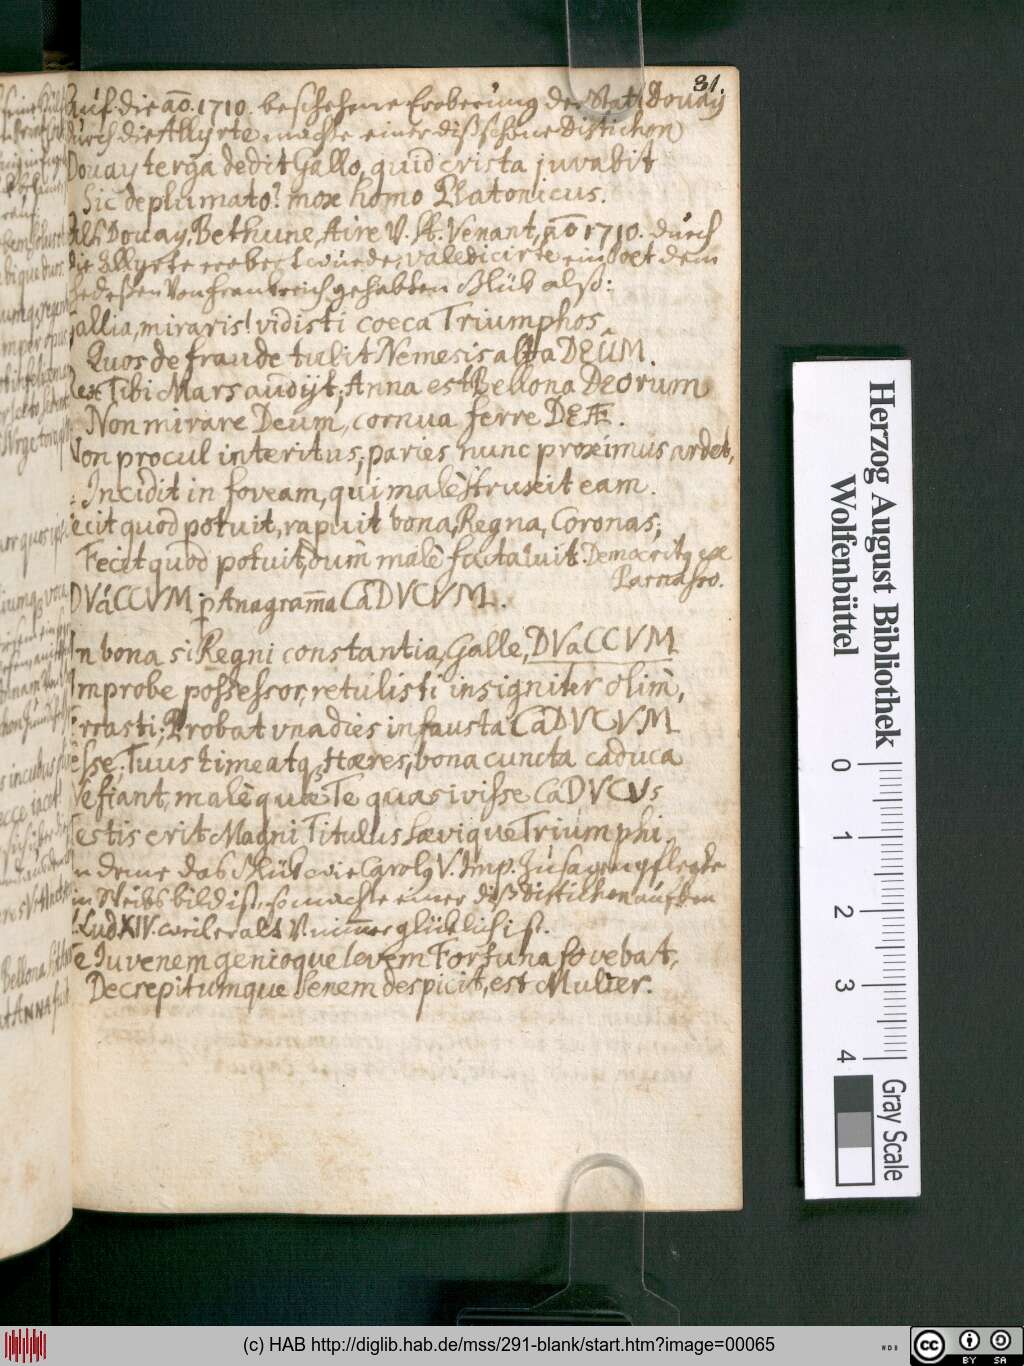 81.
Auf die aō 1710. beschehene Eroberung der Statt Douay
durch die Allyrte machte einer diß schöne Distichon
Douay terga dedit Gallo, quid crista juvabit
Sic deplumato? mox homo Platonicus.
Als Douay, Bethune, Aire V. St. Venant, aō 1710. durch
die Allyrte erobert wurde, valedicirte ein Poet dem
von Franckreich gehabten Glük alß:
Gallia, miraris! vidisti coeca Triumphos
Quos de fraude tulit Nemesis alta DEÛM.
Rex Tibi Mars audijt; Anna est Bellona Deorum
Non mirare Deum, cornua ferre DEÆ.
Non procul interitus; paries nunc proximus ardet,
Incidit in foveam, qui malè struxit eam.
Fecit quod potuit, rapuit bona, Regna, Coronas;
Fecit quod potuit, dum malè facta luit. Democritq ex
Parnasso.
DVàCCVM p Anagram̄a CaDVCVM.
In bona si Regni constantia, Galle, DVaCCVM
Improbe possessor, retulisti insigniter olim,
Errasti; Probat vna dies infausta CaDVCVM
Esse; Tuus timeatq Hæres, bona cuncta caduca
Ne fiant, malè quæ Te quasivisse CaDVCVs
Testis erit Magni Titulus sævique Triumphi.
In deme das Glük wie Carolq V. Imp. zusagen pflegte
ein Weibsbild ist, so machte einer diß Distichon auf den
Lud XIV. weil er alt V nim̄er glüklich ist.
Te Iuvenem genioque levem Fortuna fovebat,
Decrepitumque senem despicit, est Mulier.
Herzog August Bibliothek
Wolfenbüttel
0 1 2 3 4
Gray Scale
(c) HAB http://diglib.hab.de/mss/291-blank/start.htm?image=00065
WDB
cc
BY SA